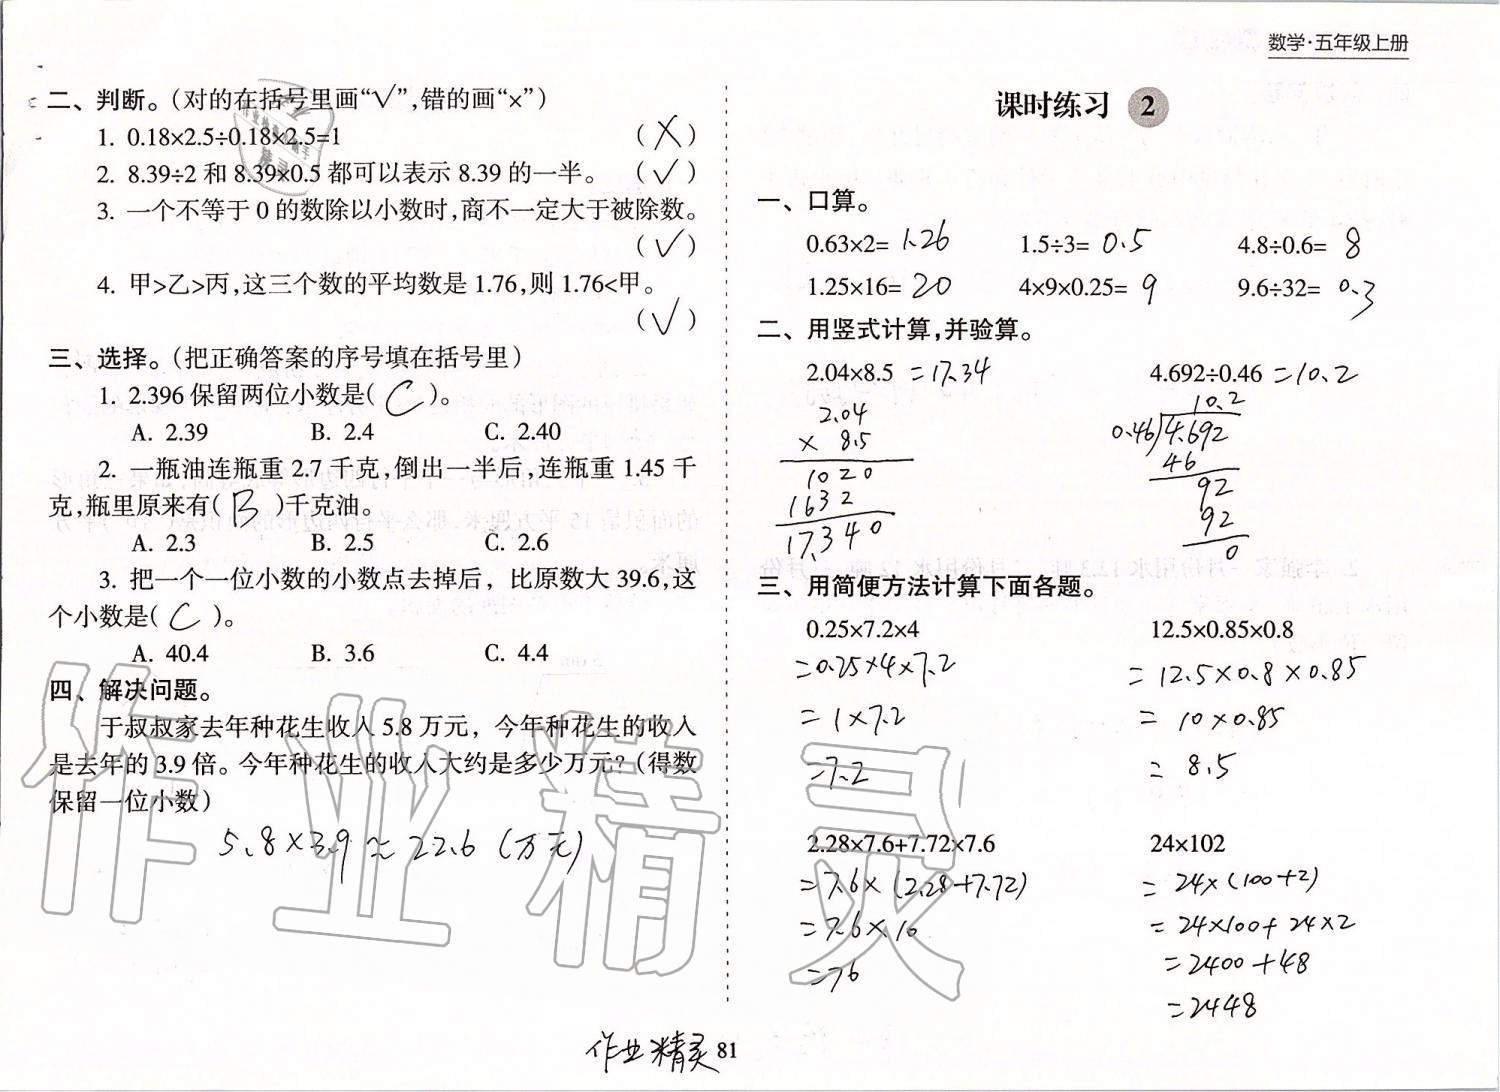 数学·五年级上册
二、判断。(对的在括号里画“√”,错的画“×”)
1. 0.18×2.5÷0.18×2.5=1 (X)
2. 8.39÷2 和 8.39×0.5 都可以表示 8.39 的一半。 (√)
3. 一个不等于 0 的数除以小数时,商不一定大于被除数。
(√)
4. 甲>乙>丙,这三个数的平均数是 1.76,则 1.76<甲。
(√)
三、选择。(把正确答案的序号填在括号里)
1. 2.396 保留两位小数是( C )。
A. 2.39 B. 2.4 C. 2.40
2. 一瓶油连瓶重 2.7 千克,倒出一半后,连瓶重 1.45 千
克,瓶里原来有( B )千克油。
A. 2.3 B. 2.5 C. 2.6
3. 把一个一位小数的小数点去掉后，比原数大 39.6,这
个小数是( C )。
A. 40.4 B. 3.6 C. 4.4
四、解决问题。
于叔叔家去年种花生收入 5.8 万元，今年种花生的收入
是去年的 3.9 倍。今年种花生的收入大约是多少万元?(得数
保留一位小数)
5.8×3.9≈22.6 (万元)
课时练习 2
一、口算。
0.63×2= 1.26 1.5÷3= 0.5 4.8÷0.6= 8
1.25×16= 20 4×9×0.25= 9 9.6÷32= 0.3
二、用竖式计算,并验算。
2.04×8.5 =17.34 4.692÷0.46 =10.2
2.04
× 8.5
1020
1632
17.340
10.2
0.46 4.692
46
92
92
0
三、用简便方法计算下面各题。
0.25×7.2×4 12.5×0.85×0.8
=0.25×4×7.2 =12.5×0.8×0.85
=1×7.2 =10×0.85
=7.2 =8.5
2.28×7.6+7.72×7.6 24×102
=7.6×(2.28+7.72) =24×(100+2)
=7.6×10 =24×100+24×2
=76 =2400+48
=2448
作业精灵
作业精灵 81